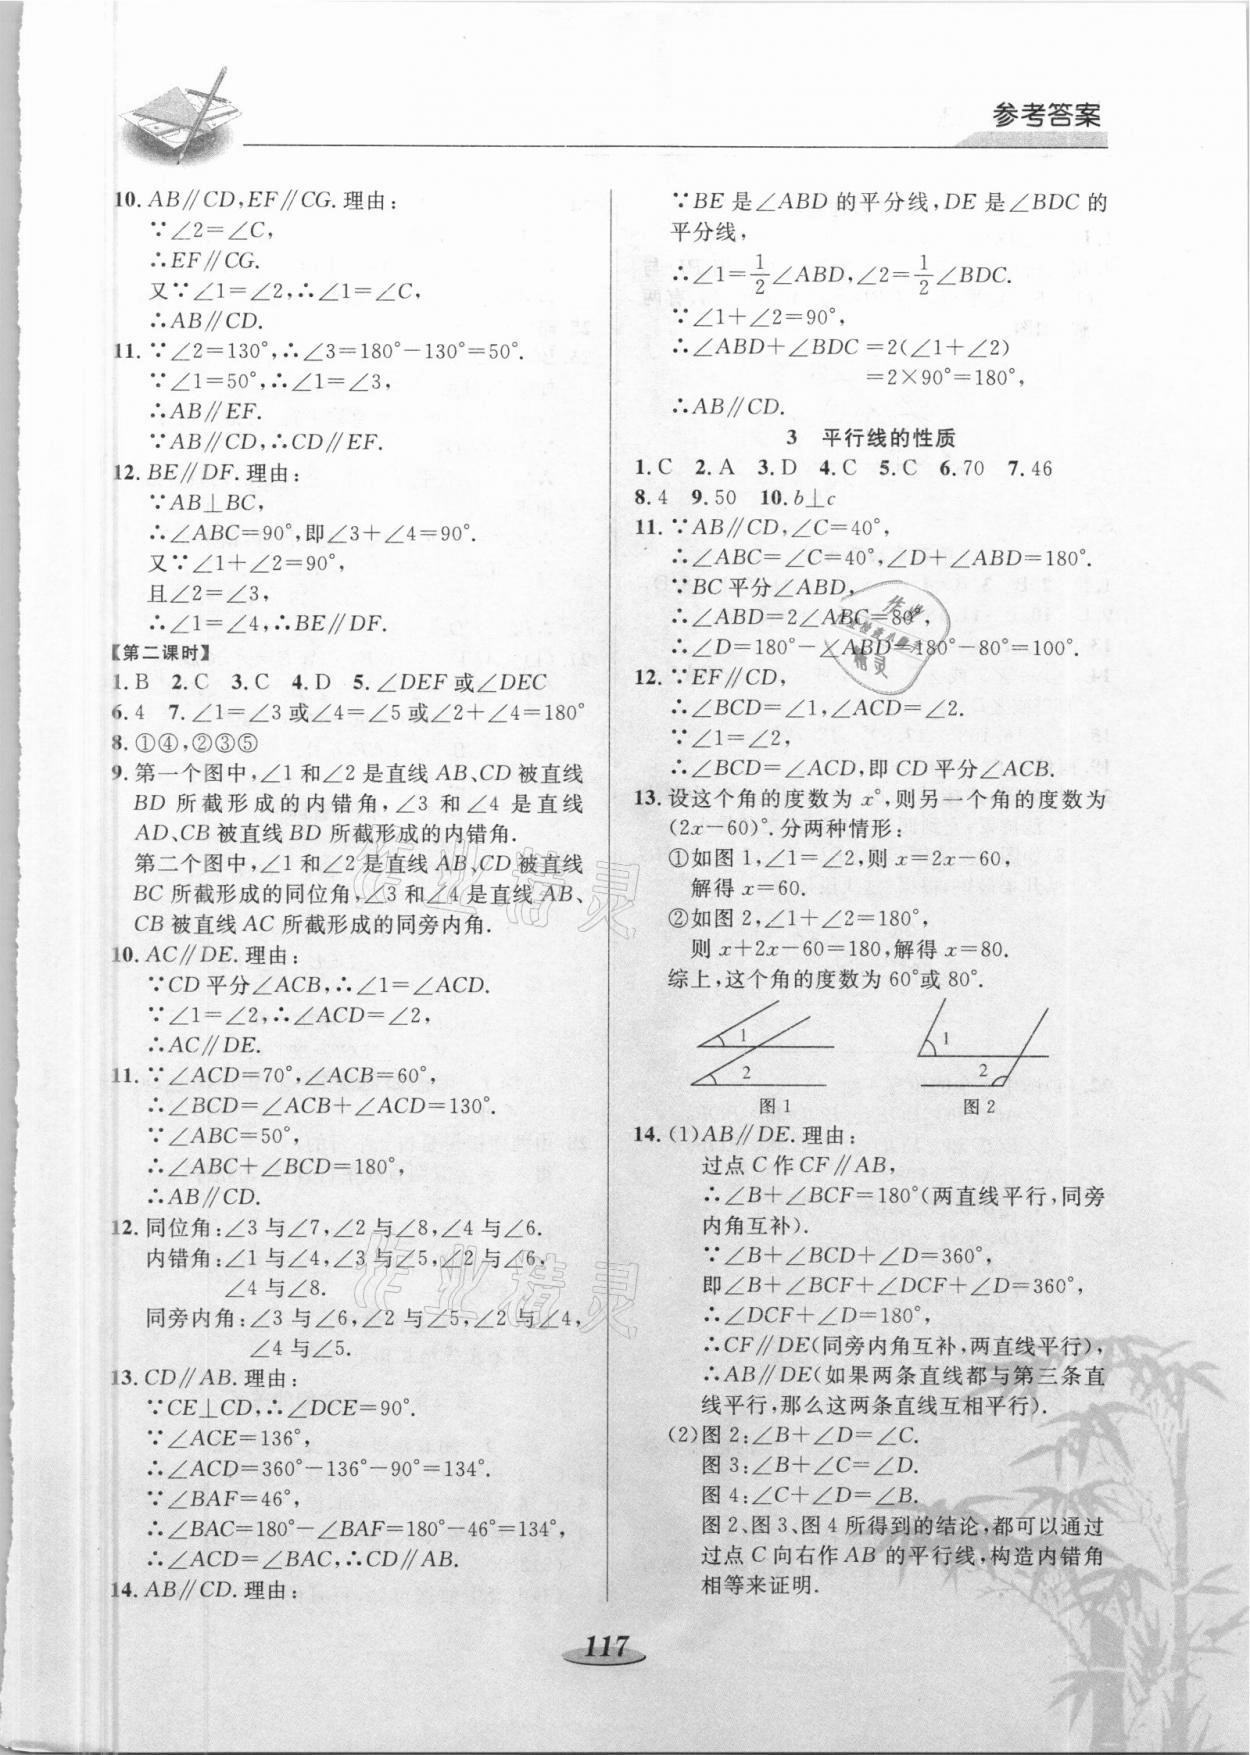 参考答案
10. AB∥CD,EF∥CG.理由:
∵∠2=∠C,
∴EF∥CG.
又∵∠1=∠2,∴∠1=∠C,
∴AB∥CD.
11. ∵∠2=130°,∴∠3=180°-130°=50°.
∵∠1=50°,∴∠1=∠3,
∴AB∥EF.
∵AB∥CD,∴CD∥EF.
12. BE∥DF.理由:
∵AB⊥BC,
∴∠ABC=90°,即∠3+∠4=90°.
又∵∠1+∠2=90°,
且∠2=∠3,
∴∠1=∠4,∴BE∥DF.
【第二课时】
1. B 2. C 3. C 4. D 5. ∠DEF或∠DEC
6. 4 7. ∠1=∠3或∠4=∠5或∠2+∠4=180°
8. ①④,②③⑤
9. 第一个图中,∠1和∠2是直线AB、CD被直线
BD所截形成的内错角,∠3和∠4是直线
AD、CB被直线BD所截形成的内错角.
第二个图中,∠1和∠2是直线AB、CD被直线
BC所截形成的同位角,∠3和∠4是直线AB、
CB被直线AC所截形成的同旁内角.
10. AC∥DE.理由:
∵CD平分∠ACB,∴∠1=∠ACD.
∵∠1=∠2,∴∠ACD=∠2,
∴AC∥DE.
11. ∵∠ACD=70°,∠ACB=60°,
∴∠BCD=∠ACB+∠ACD=130°.
∵∠ABC=50°,
∴∠ABC+∠BCD=180°,
∴AB∥CD.
12. 同位角:∠3与∠7,∠2与∠8,∠4与∠6.
内错角:∠1与∠4,∠3与∠5,∠2与∠6,
∠4与∠8.
同旁内角:∠3与∠6,∠2与∠5,∠2与∠4,
∠4与∠5.
13. CD∥AB.理由:
∵CE⊥CD,∴∠DCE=90°.
∵∠ACE=136°,
∴∠ACD=360°-136°-90°=134°.
∵∠BAF=46°,
∴∠BAC=180°-∠BAF=180°-46°=134°,
∴∠ACD=∠BAC,∴CD∥AB.
14. AB∥CD.理由:
∵BE是∠ABD的平分线,DE是∠BDC的
平分线,
∴∠1=1/2∠ABD,∠2=1/2∠BDC.
∵∠1+∠2=90°,
∴∠ABD+∠BDC=2(∠1+∠2)
=2×90°=180°,
∴AB∥CD.
3 平行线的性质
1. C 2. A 3. D 4. C 5. C 6. 70 7. 46
8. 4 9. 50 10. b⊥c
11. ∵AB∥CD,∠C=40°,
∴∠ABC=∠C=40°,∠D+∠ABD=180°.
∵BC平分∠ABD,
∴∠ABD=2∠ABC=80°,
∴∠D=180°-∠ABD=180°-80°=100°.
12. ∵EF∥CD,
∴∠BCD=∠1,∠ACD=∠2.
∵∠1=∠2,
∴∠BCD=∠ACD,即CD平分∠ACB.
13. 设这个角的度数为x°,则另一个角的度数为
(2x-60)°.分两种情形:
①如图1,∠1=∠2,则x=2x-60,
解得x=60.
②如图2,∠1+∠2=180°,
则x+2x-60=180,解得x=80.
综上,这个角的度数为60°或80°.
1
2
图1
1
2
图2
14. (1)AB∥DE.理由:
过点C作CF∥AB,
∴∠B+∠BCF=180°(两直线平行,同旁
内角互补).
∵∠B+∠BCD+∠D=360°,
即∠B+∠BCF+∠DCF+∠D=360°,
∴∠DCF+∠D=180°,
∴CF∥DE(同旁内角互补,两直线平行),
∴AB∥DE(如果两条直线都与第三条直
线平行,那么这两条直线互相平行).
(2)图2:∠B+∠D=∠C.
图3:∠B+∠C=∠D.
图4:∠C+∠D=∠B.
图2、图3、图4所得到的结论,都可以通过
过点C向右作AB的平行线,构造内错角
相等来证明.
117
作业精灵
作业精灵